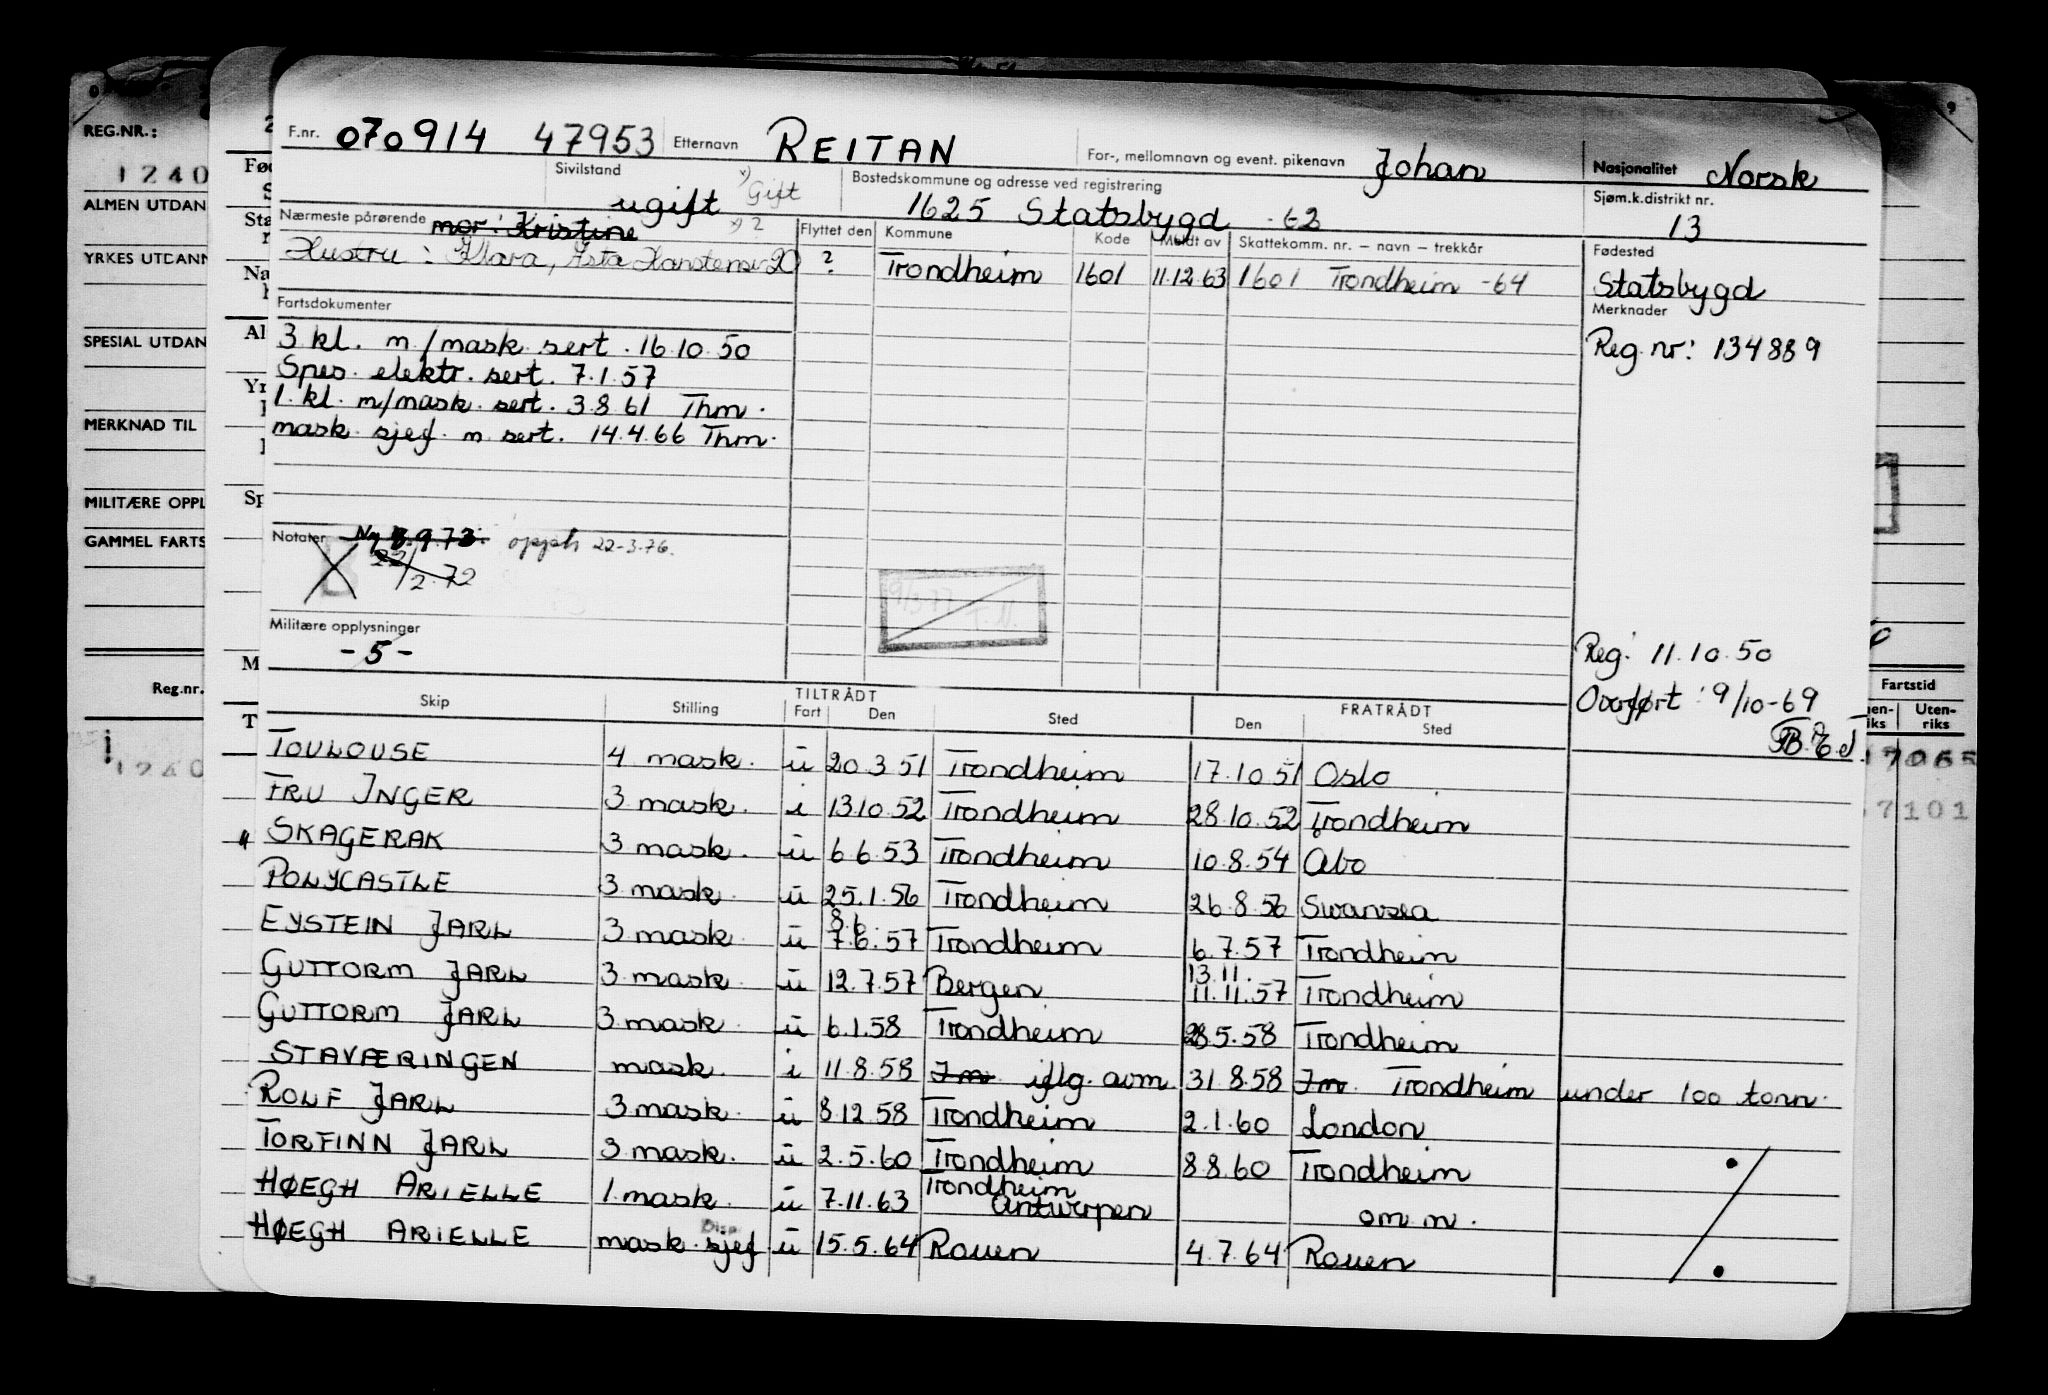 F.nr. 070914 47953 Etternavn REITAN For-, mellomnavn og event. pikenavn Johan Nasjonalitet Norsk
Sivilstand ugift x) Gift Bostedskommune og adresse ved registrering 1625 Statsbygd - 62 Sjøm.k.distrikt nr. 13
Nærmeste pårørende mor: Kristine x) ? Flyttet den Kommune Kode Meldt av Skattekomm. nr. – navn – trekkår Fødested
Hustru: Klara, Asta Karstensen 20 ? Trondheim 1601 11.12.63 1601 Trondheim -64 Statsbygd
Fartsdokumenter Merknader
3 kl. m/mask. sert. 16.10.50 Reg. nr: 134889
Spes. elektr. sert. 7.1.57
1. kl. m/mask. sert. 3.8.61 Thm.
mask. sjef. m. sert. 14.4.66 Thm.
Notater Ny 3.9.73. opph 22-3-76.
22/2-72
9/3-77 T.N.
Militære opplysninger
-5-
Reg: 11.10.50
Overført: 9/10-69
Skip Stilling TILTRÅDT Fart Den Sted FRATRÅDT Den Sted
TOULOUSE 4 mask. u 20.3.51 Trondheim 17.10.51 Oslo
FRU INGER 3 mask. i 13.10.52 Trondheim 28.10.52 Trondheim
" SKAGERAK 3 mask. u 6.6.53 Trondheim 10.8.54 Åbo
POLYCASTLE 3 mask. u 25.1.56 Trondheim 26.8.56 Swansea
8.6.
EYSTEIN JARL 3 mask. u 7.6.57 Trondheim 6.7.57 Trondheim
13.11.
GUTTORM JARL 3 mask. u 12.7.57 Bergen 11.11.57 Trondheim
GUTTORM JARL 3 mask. u 6.1.58 Trondheim 28.5.58 Trondheim
STAVÆRINGEN mask. i 11.8.58 Im. iflg. avm. 31.8.58 Im. Trondheim under 100 tonn.
ROLF JARL 3 mask. u 8.12.58 Trondheim 2.1.60 London
TORFINN JARL 3 mask. u 2.5.60 Trondheim 8.8.60 Trondheim
HØEGH ARIELLE 1. mask. u 7.11.63 Trondheim Antwerpen om m.
Disp
HØEGH ARIELLE mask. sjef u 15.5.64 Rouen 4.7.64 Rouen
REG.NR.:
1240
ALMEN UTDAN
YRKES UTDANN
SPESIAL UTDAN
MERKNAD TIL
MILITÆRE OPPL
GAMMEL FARTS
Reg.nr.
1240
Fartstid
Uten-
riks
7101